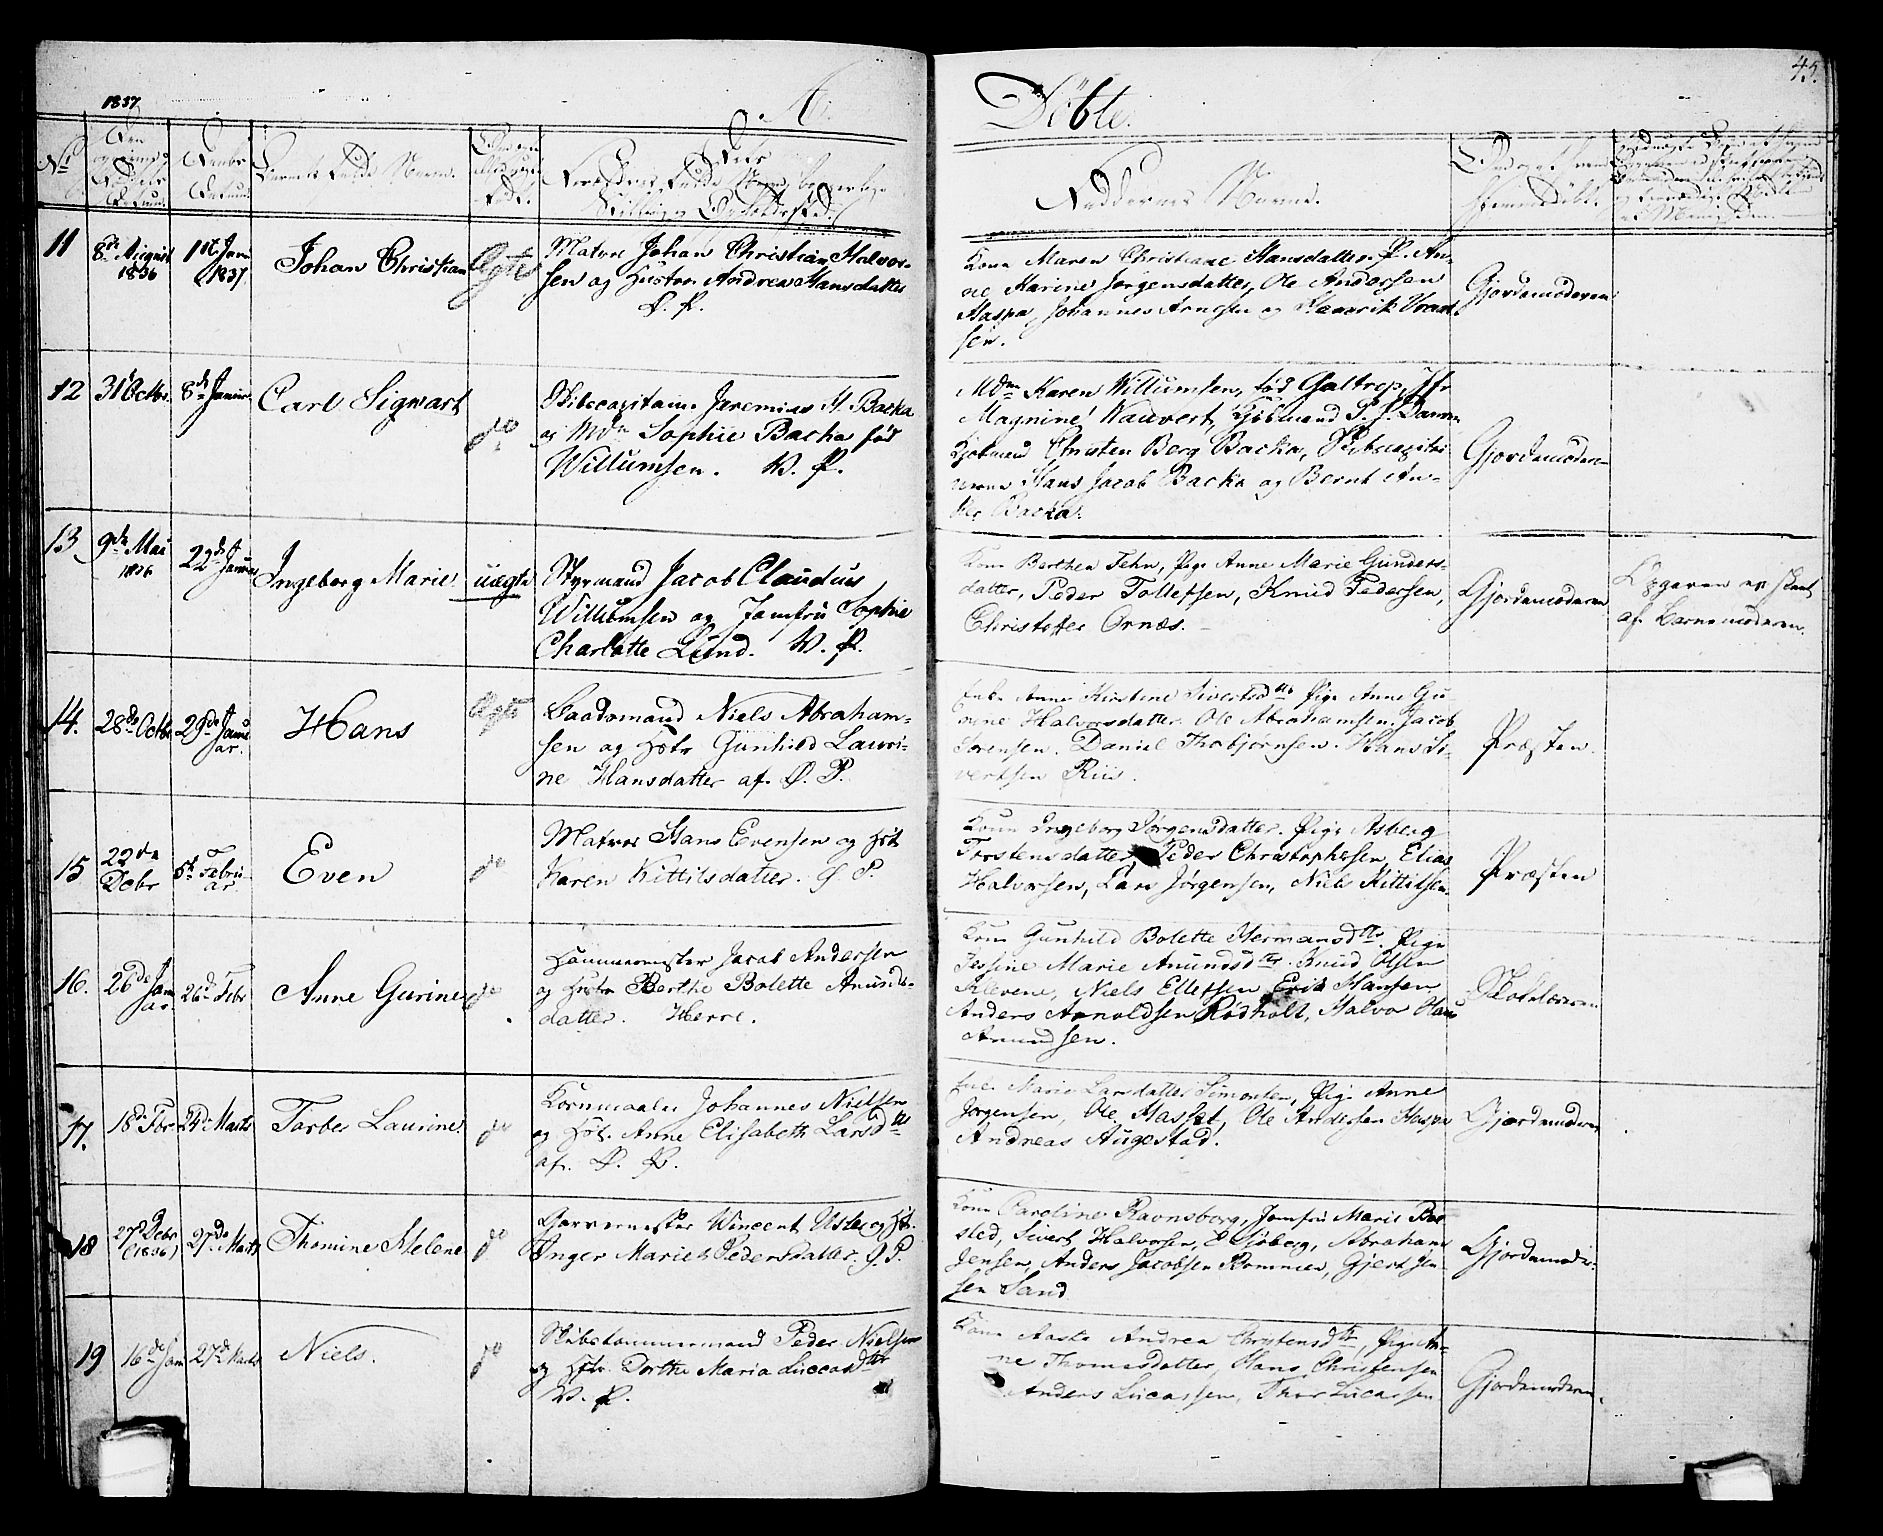 1837
A.
Døbte.
45.
No
Barnets fulde Navn.
Faddernes Navne.
11
8de August
1836
1ste Janr
1837
Johan Christian
Ægte
Matros Johan Christian Halvor-
sen og Hustroe Andrea Hansdatter
Ø. P.
Kone Maren Christiane Hansdatter. P. An-
ne Karine Jørgensdatter, Ole Andersen
Haspa, Johannes Arnesen og Hendrik
sen.
Gjordemoderen
12
31 Octbr.
8de Januar
Carl Sigwart
do
Skibscapitain Jeremias H. Backa
og Mdm Sophie Backa fød
Willumsen. W. P.
Mdm Karen Willumsen, fød Galtrop, Jfr
Magnine Nauvert, Kjøbmand P. J.
Kjøbmand Christen Berg Backa, Skibscapitai
nerne Hans Jacob Backa og Bernt An-
Backa.
Gjordemoderen
13
9de Mai
1836
22de Januar
Ingeborg Marie
uægte
Styrmand Jacob Claudius
Willumsen og Jomfru Sophie
Charlotte Lund. W. P.
Kone Berthea Tehn, Pige Anne Marie Gunders-
datter, Peder Tollefsen, Knud Pedersen,
Christoffer Ornæs.
Gjordemoderen
Opgaven er skeet
af Barnemoderen.
14.
28de Octbr
29de Janu
ar.
Hans
Ægte
Baadsmand Niels Abraham-
sen og Hstr Gunhild Lauri-
ne Hansdatter af. Ø. P.
Enke Anne Kirstine Sivertsdtr Pige Anne Gu
rine Halvorsdatter. Ole Abrahamsen. Jacob
Sørensen. Daniel Thorbjørnsen. Hans Si-
vertsen Riis.
Præsten.
15
22de
Debr
5te Febru
ar.
Even
do
Matros Hans Evensen og Hst
Karen Kittilsdatter. G. P.
Kone Ingeborg Jørgensdatter. Pige Asberg
Torstensdatter, Peder Christophersen, Elias
Halvorsen, Lars Jørgensen, Niels Kittilsen.
Præsten
16.
26de Janu
ar.
26de Febr
Anne Gurine
do
Hammermester Jacob Andersen
og Hustr Berthe Bolette Anunds-
datter. Herre.
Kone Gunhild Bolette Hermansdtr. Pige
Jessine Marie Anundsdtr. Knud Olsen
Klevene, Niels Ellefsen, Erik Hansen
Anders Arnoldsen Rødholt, Halvor Hans
Anundsen.
Skolelæreren
17.
18de Febr
24de Marts
Tarber Laurine.
do
Kornmaaler Johannes Nielsen
og Hst. Anne Elisabeth Larsdtr
af. Ø. P.
Enke Marie Larsdatter Simonsen, Pige Anne
Jørgensen, Ole Hasset, Ole Andersen Haspa
Andreas Augestad.
Gjordemoderen
18
27de Debr
(1836)
27de Marts
Thomine Helene
do
Garvermester Wincent Usler og Hst.
Inger Marie Pedersdatter. G. P.
Kone Caroline Ravnsborg, Jomfru Marie Boe
sted, Sivert Halvorsen, E Sjøberg, Abraham
Jensen, Anders Jacobsen Rommen, Gjert Jen
sen Sand
Gjordemoder.
19
16de Jan
27de Marts
Niels.
do
Skibstømmermand Peder Nielsen
og Hstr. Dorthe Maria Luccasdtr
W. P.
Kone Aaste Andrea Christensdtr, Pige An-
ne Thomasdatter, Hans Christensen
Anders Lucassen, Thor Lucassen
Gjordemoderen.